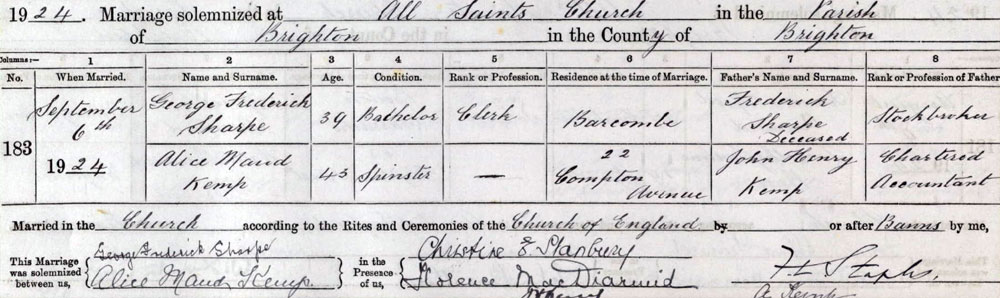 1924. Marriage solemnized at All Saints Church in the Parish
of Brighton in the County of Brighton
Columns:— 1 2 3 4 5 6 7 8
No. When Married. Name and Surname. Age. Condition. Rank or Profession. Residence at the time of Marriage. Father's Name and Surname. Rank or Profession of Father
183
September 6th 1924
George Frederick Sharpe 39 Bachelor Clerk Barcombe Frederick Sharpe Deceased Stockbroker
Alice Maud Kemp 43 Spinster — 22 Compton Avenue John Henry Kemp Chartered Accountant
Married in the Church according to the Rites and Ceremonies of the Church of England by or after Banns by me,
This Marriage was solemnized between us,
George Frederick Sharpe
Alice Maud Kemp
in the Presence of us,
Christine E
Florence MacDiarmid
A Kemp